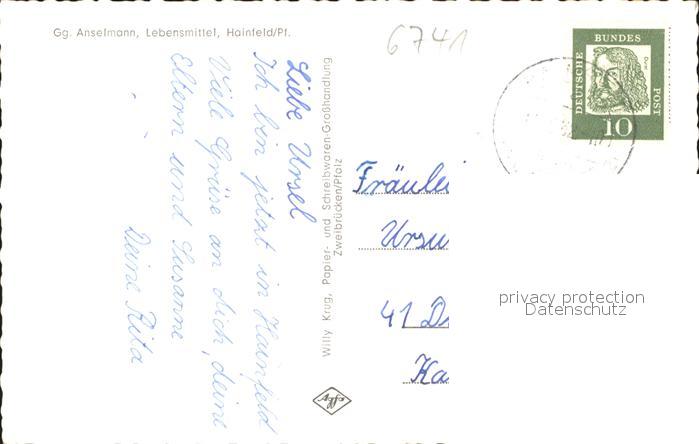 Gg. Anselmann, Lebensmittel, Hainfeld/Pf.
6741
DEUTSCHE
BUNDES
POST
Dürer
10
Liebe Ursel
Ich bin jetzt in Hainfeld
Viele Grüse an dich, deine
Eltern und Susanne
Deine Rita
Willy Krug, Papier- und Schreibwaren-Großhandlung
Zweibrücken/Pfalz
Fräulei
Ursu
41 D
Ka
Agfa
privacy protection
Datenschutz